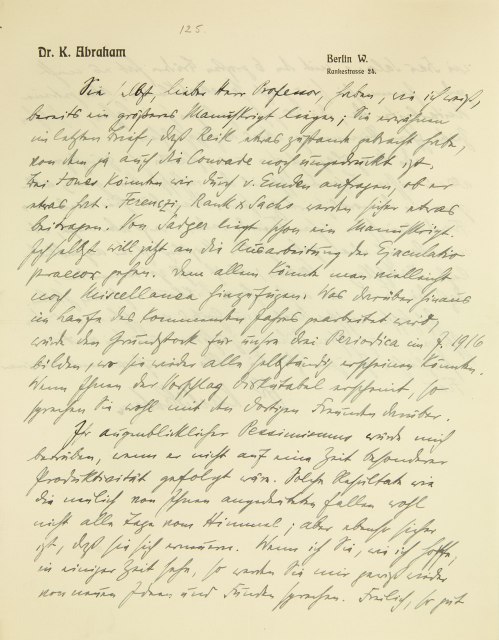 125.
Dr. K. Abraham
Berlin W.
Rankestrasse 24.
Sie selbst, lieber Herr Professor, haben, wie ich weiß,
bereits ein größeres Manuskript liegen; Sie erwähnen
im letzten Brief, daß Reik etwas zustande gebracht habe,
von dem ja auch die Couvade noch ungedruckt ist.
Bei Jones könnten wir durch v. Emden anfragen, ob er
etwas hat. Ferenczi, Rank & Sachs werden sicher etwas
beitragen. Von Sadger liegt schon ein Manuskript.
Ich selbst will jetzt an die Ausarbeitung der Ejaculatio
praecox gehen. Dem allem könnte man vielleicht
noch Miscellanea hinzufügen. Was darüber hinaus
im Laufe des kommenden Jahres gearbeitet wird,
würde den Grundstock für unsre drei Periodica im J. 1916
bilden, wo sie wieder alle selbständig erscheinen könnten.
Wenn Ihnen der Vorschlag diskutabel erscheint, so
sprechen Sie wohl mit den dortigen Freunden darüber.
Ihr augenblicklicher Pessimismus würde mich
betrüben, wenn er nicht auf eine Zeit besonderer
Produktivität gefolgt wäre. Solche Resultate wie
die neulich von Ihnen angedeuteten fallen wohl
nicht alle Tage vom Himmel; aber ebenso sicher
ist, daß sie sich erneuern. Wenn ich Sie, wie ich hoffe,
in einiger Zeit sehe, so werden Sie mir gewiß wieder
von neuen Ideen und Funden sprechen. Freilich, so gut